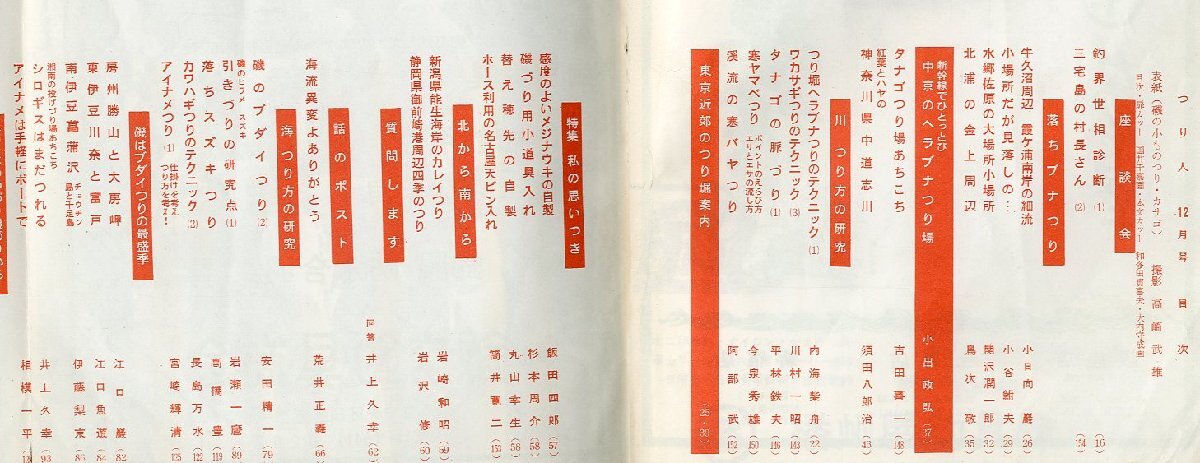 つり人 12月号 目次
表紙（磯の小もののつり・カサゴ） 撮影 高崎武雄
座談会
釣界世相診断 (1) (16)
三宅島の村長さん (2) (54)
落ちブナつり
牛久沼周辺 霞ケ浦南岸の細流 小日向 巌 (26)
小場所だが見落しの… 小谷鮒夫 (29)
水郷佐原の大場所小場所 関沢潤一郎 (32)
北浦の金上周辺 鳥次敬 (35)
新幹線でひとっとび
中京のヘラブナつり場 小出政弘 (37)
タナゴつり場あちこち 吉田喜一 (48)
紅葉とハヤの
神奈川県中道志川 須田八郎治 (43)
川 つり方の研究
つり堀ヘラブナつりのテクニック (1) 内海榮舟 (22)
ワカサギつりのテクニック (3) 川村一昭 (143)
タナゴの脈づり (1) 平林鉄夫 (146)
寒ヤマベつり ポイントのえらび方 よりとエサの流し方 今泉秀雄 (150)
溪流の寒バヤつり 阿部武 (152)
東京近郊のつり堀案内 (25・30)
特集 私の思いつき
感度のよいメジナウキの自製 飯田四郎 (57)
磯づり用小道具入れ 杉本周介 (58)
替え穂先の自製 丸山幸生 (58)
ホース利用の名古屋天ビン入れ 筒井寛二 (151)
北から南から
新潟県能生海岸のカレイつり 岩崎和昭 (59)
静岡県御前崎港周辺四季のつり 岩沢 修 (60)
質問します 回答 井上久幸 (62)
話のポスト
海流異変よありがとう 荒井正義 (66)
海 つり方の研究
磯のブダイつり (2) 安田精一 (79)
磯のヒラメ スズキ
引きづりの研究点 (1) 岩瀬一麿 (89)
落ちスズキつり 高橋豊 (119)
カワハギつりのテクニック (2) 長島万水 (122)
アイナメつり (1) 仕掛けを考え つり方を考え! 宮崎輝清 (125)
磯はブダイつりの最盛季
房州勝山と大房岬 江口 巌 (82)
東伊豆川奈と富戸 江口魚遊 (84)
南伊豆菖蒲沢 チョウチン島と十足島 伊藤梨京 (86)
湘南の投げづり場あちこち
シロギスはまだつれる 井上久幸 (93)
アイナメは手軽にボートで 相模一平